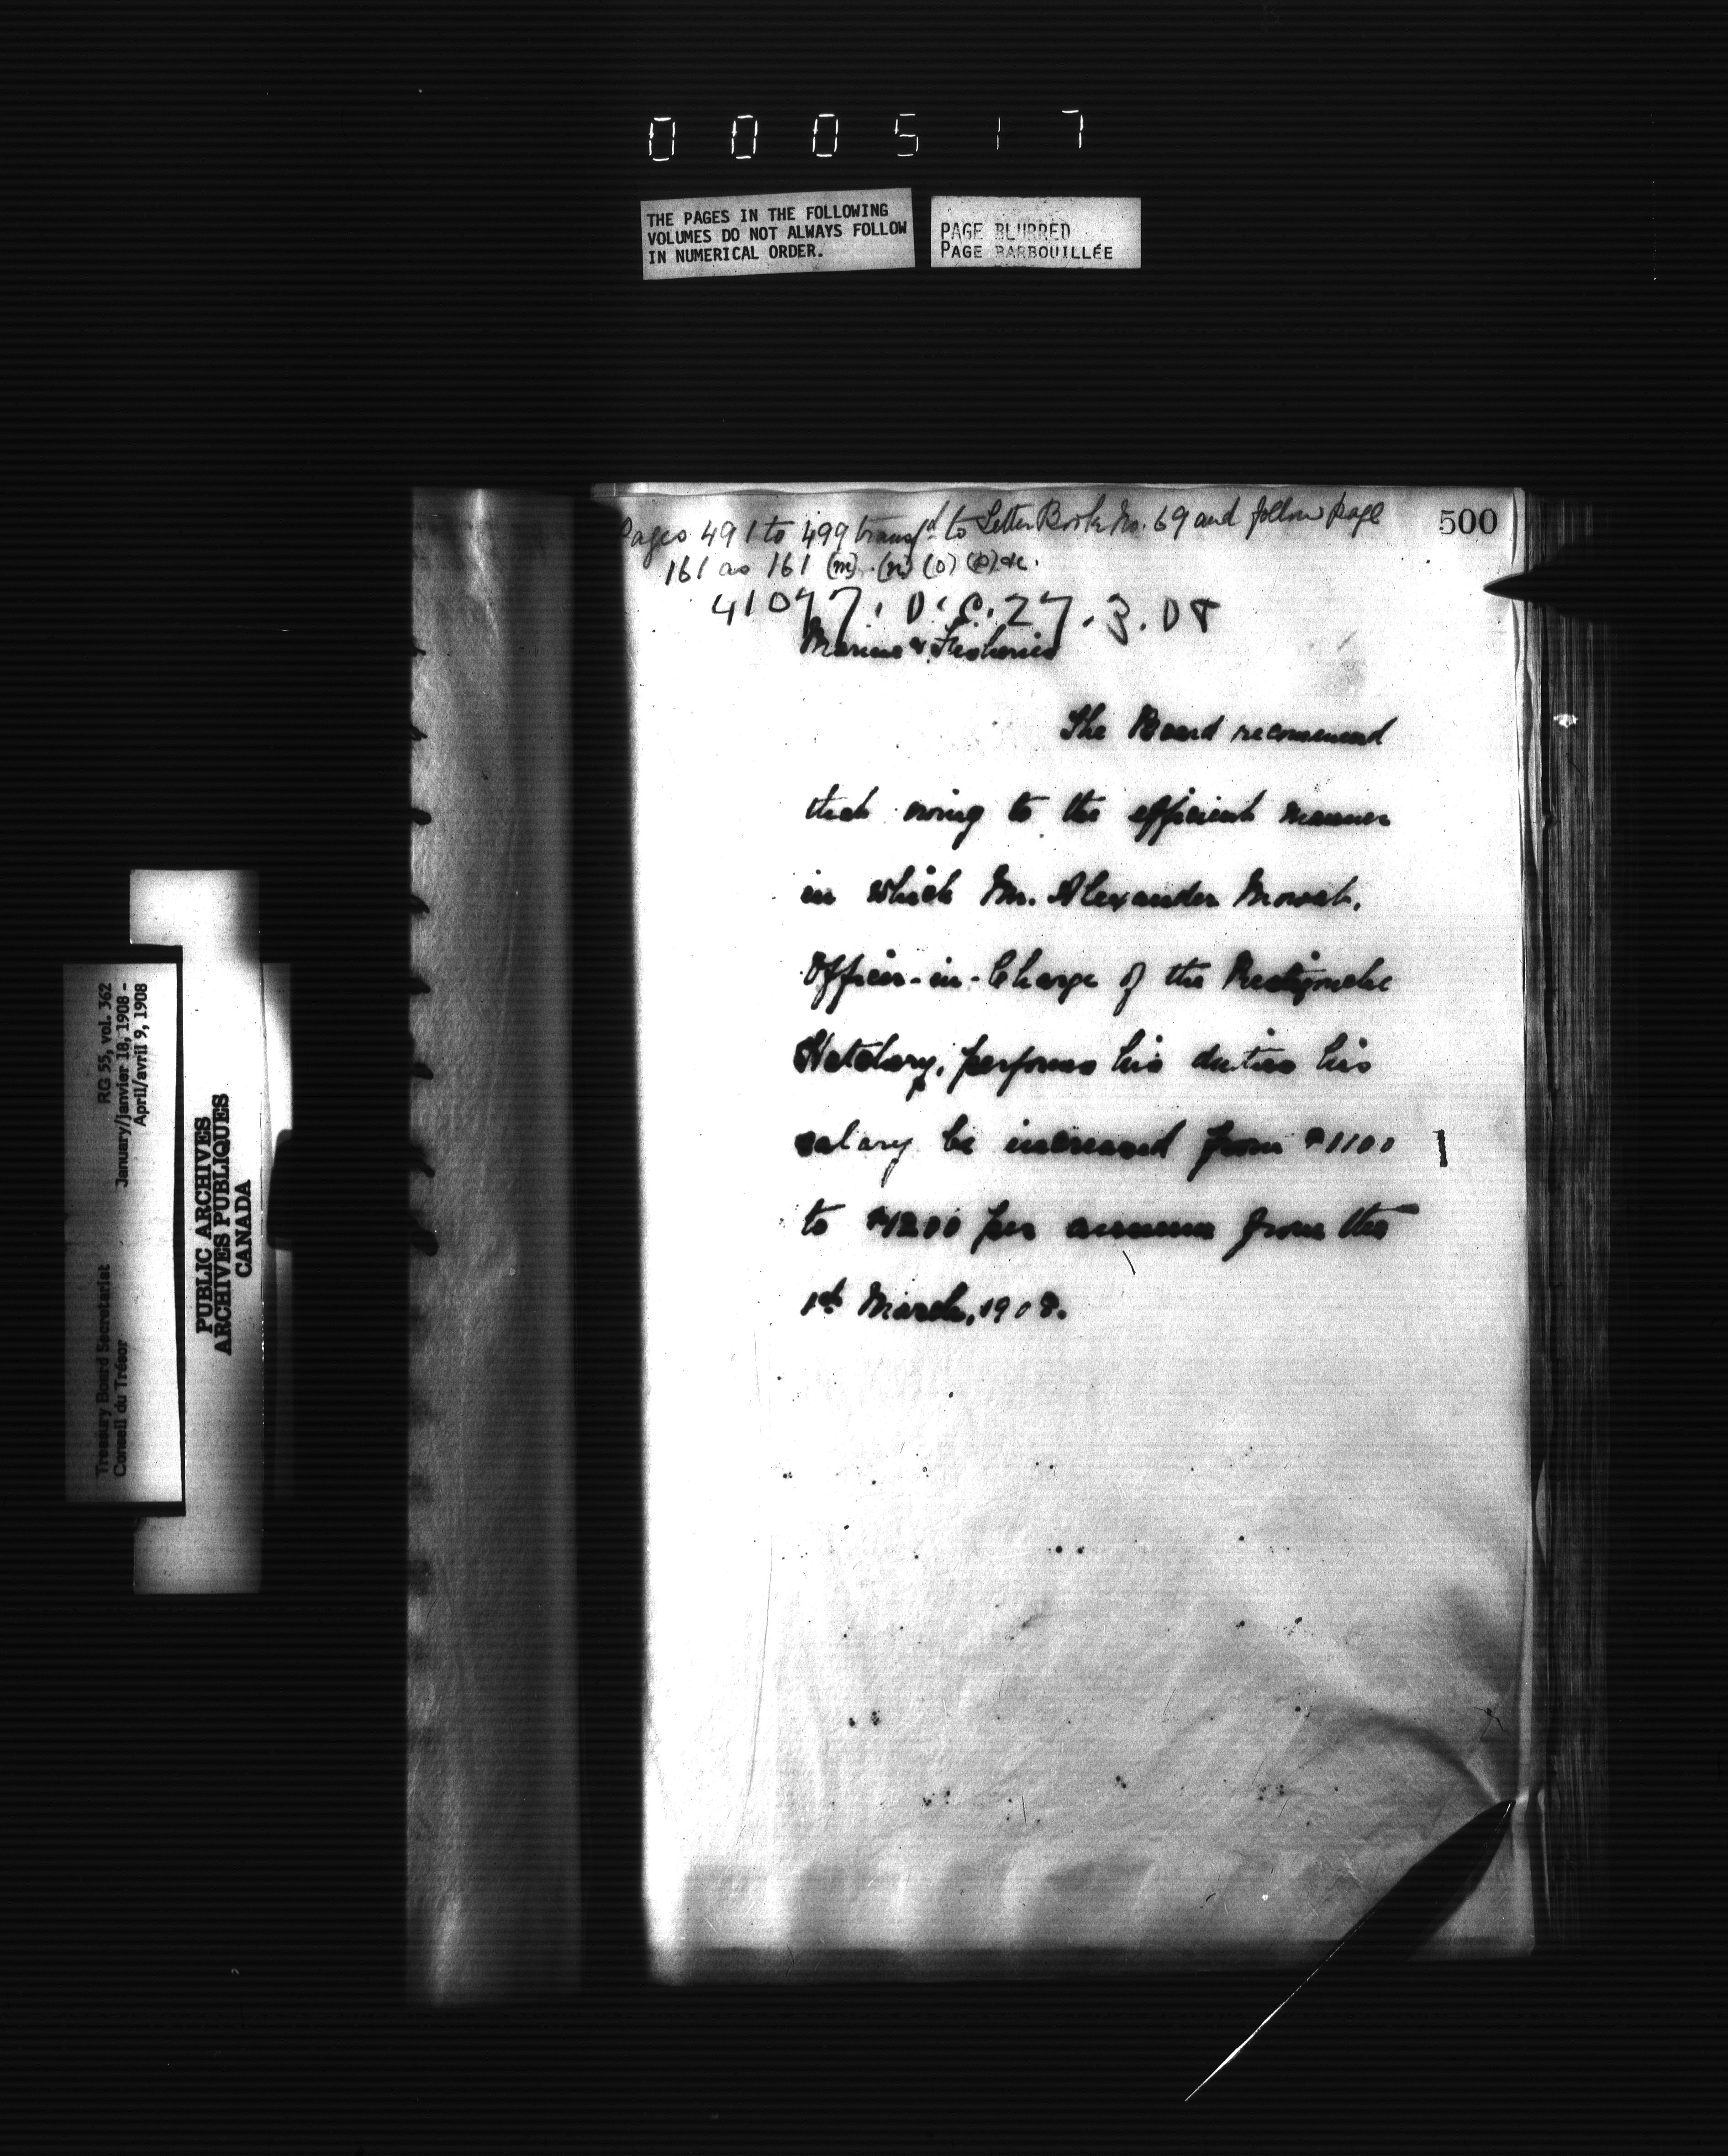 000517
THE PAGES IN THE FOLLOWING
VOLUMES DO NOT ALWAYS FOLLOW
IN NUMERICAL ORDER.
PAGE BLURRED
PAGE BARBOUILLÉE
500
Pages 491 to 499 transfd to Letter Book No. 69 and follow page
161 as 161 (m) (n) (o) (p) &c.
41047. O.C. 27.3.08
Marine & Fisheries
The Board recommend
that owing to the efficient manner
in which Mr. Alexander Mowat,
Officer-in-Charge of the Restigouche
Hatchery, performs his duties his
salary be increased from $1100
to $1200 per annum from the
1st March, 1908.
Treasury Board Secretariat RG 55, vol. 362
Conseil du Trésor January/janvier 18, 1908 -
April/avril 9, 1908
PUBLIC ARCHIVES
ARCHIVES PUBLIQUES
CANADA